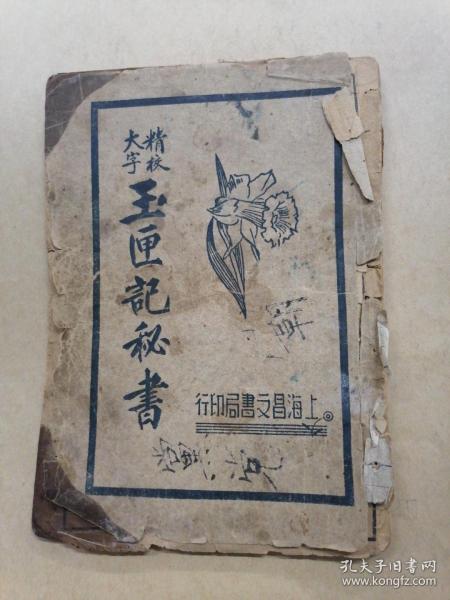 精校
大字
玉匣記秘書
上海昌文書局印行
孔夫子旧书网
www.kongfz.com